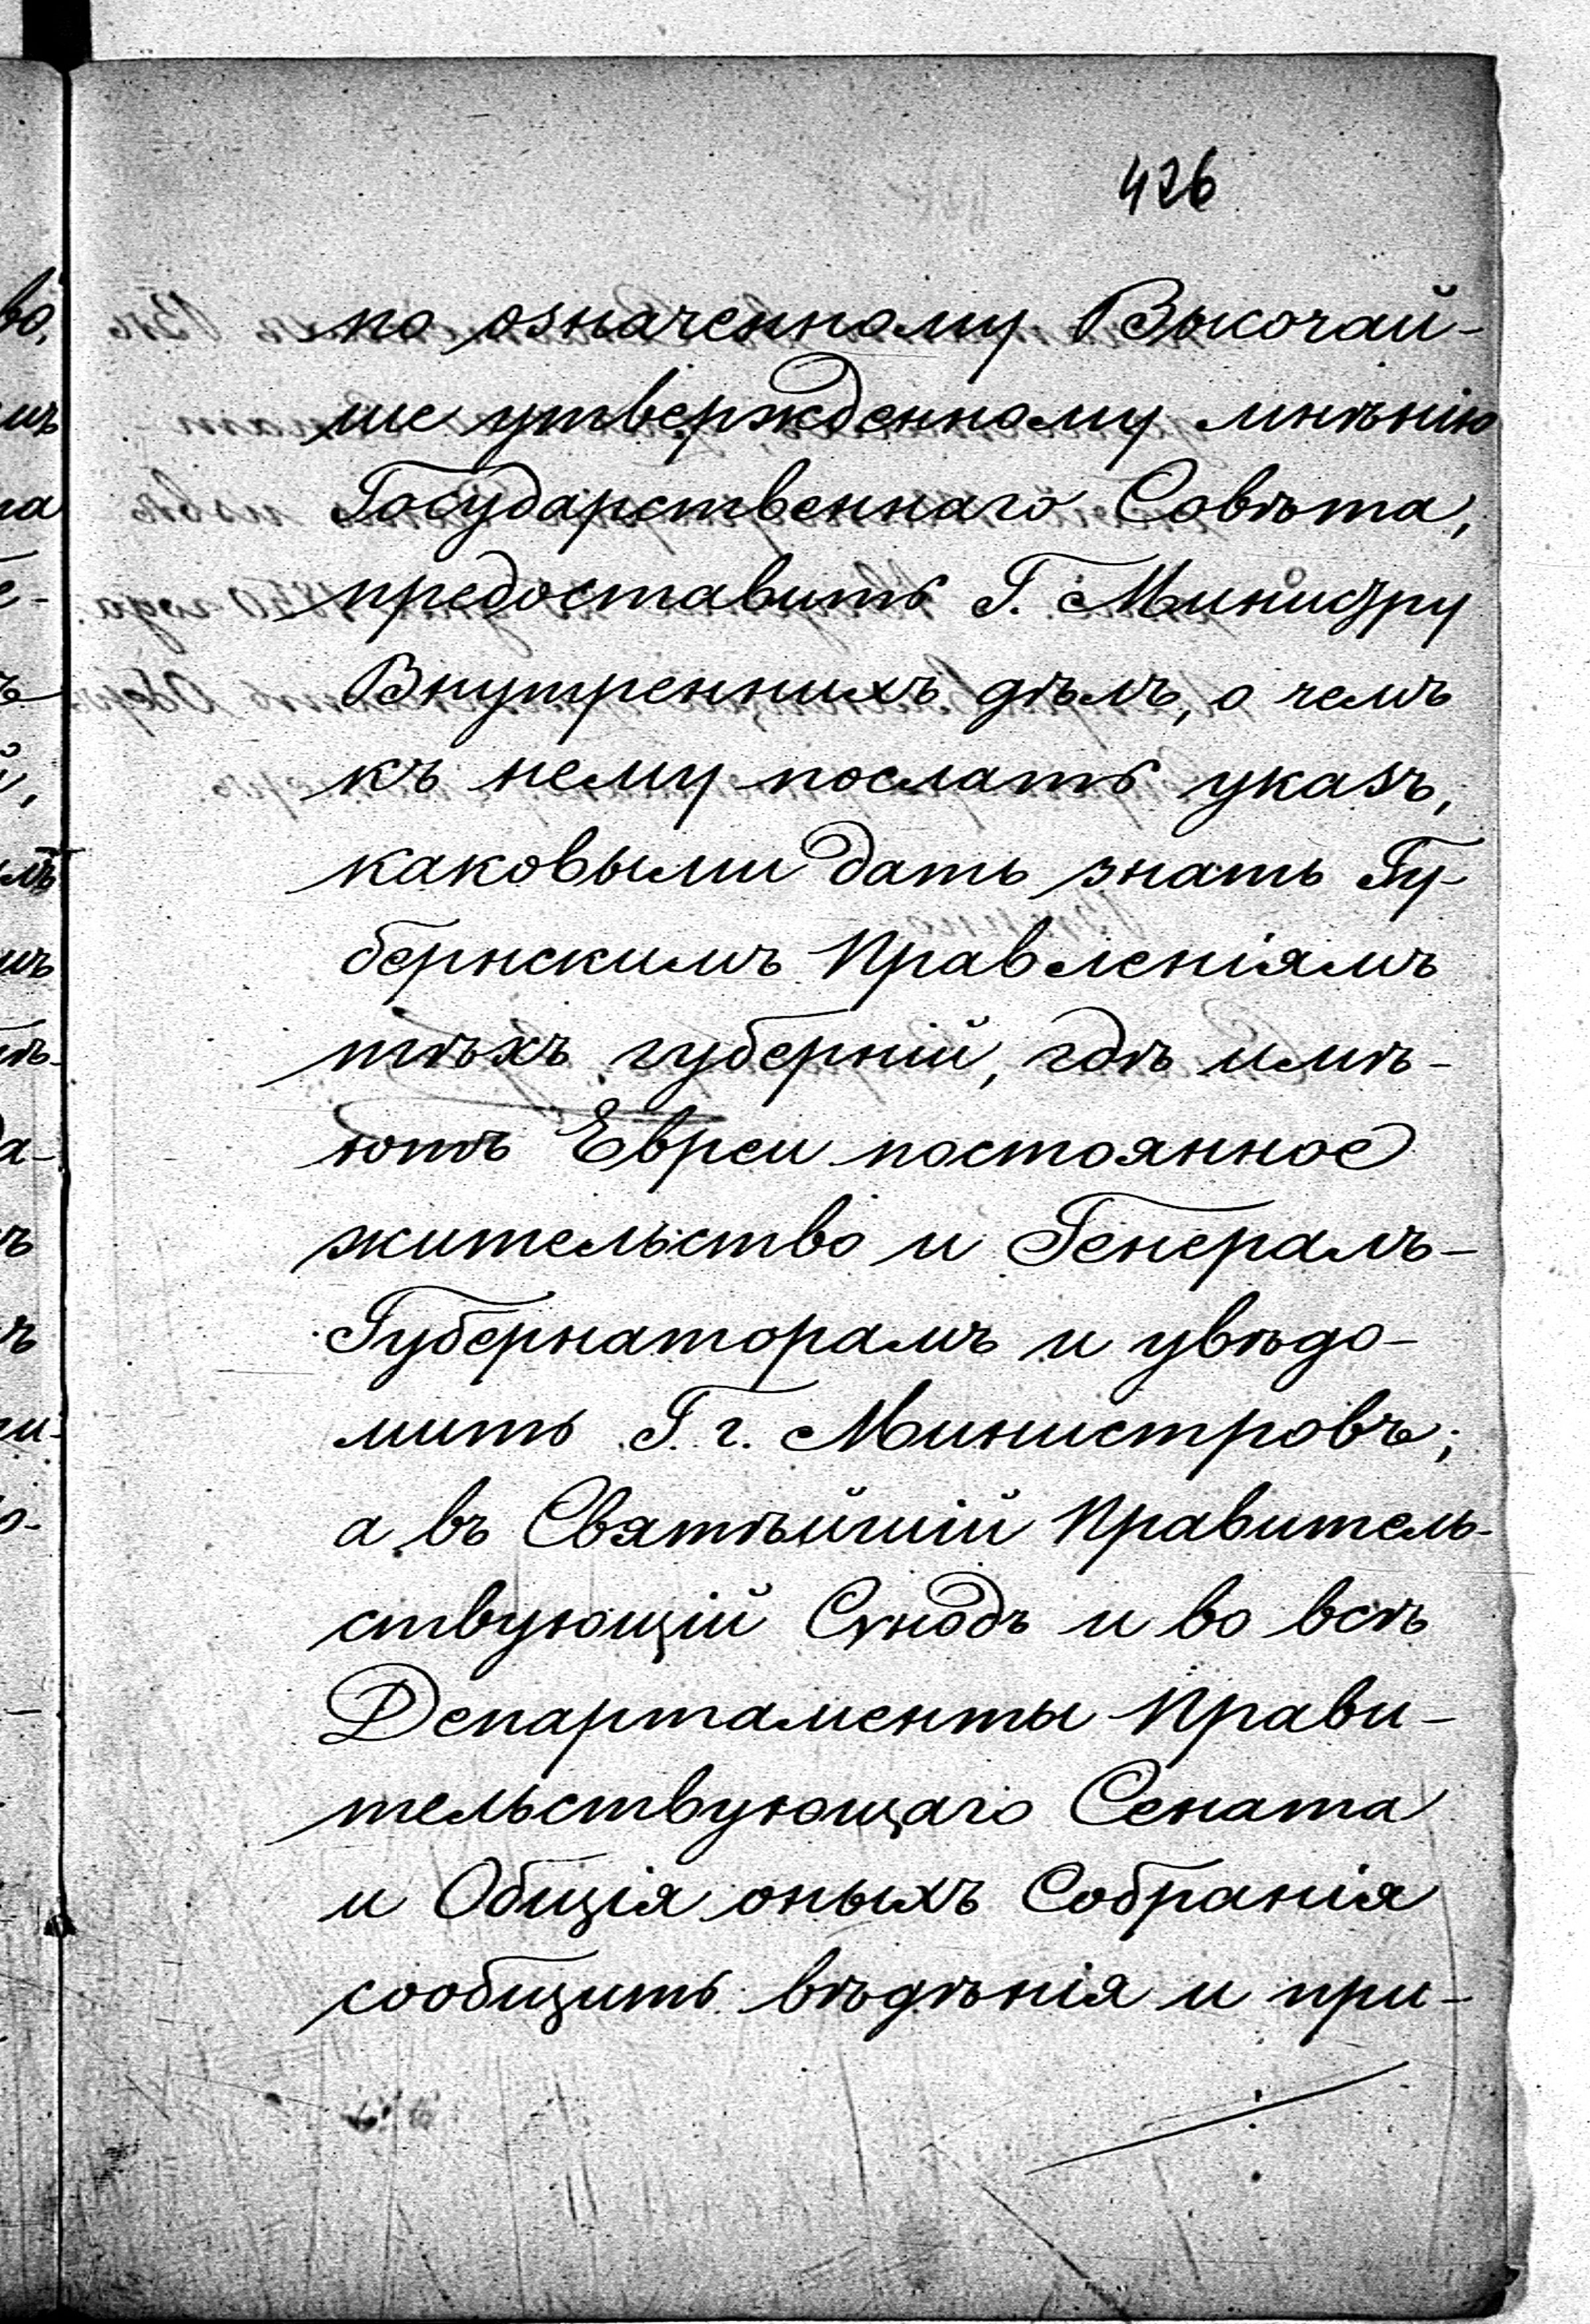 426
по означенному Высочай-
ше утвержденному мнѣнію
Государственнаго Совѣта,
предоставить Г. Министру
Внутреннихъ дѣлъ, о чемъ
къ нему послать указъ,
каковыми дать знать Гу-
бернскимъ Правленіямъ
тѣхъ губерній, гдѣ имѣ-
ютъ Евреи постоянное
жительство и Генералъ-
Губернаторамъ и увѣдо-
мить Г. г. Министровъ;
а въ Святѣйшій Правитель-
ствующій Сѵнодъ и во всѣ
Департаменты Прави-
тельствующаго Сената
и Общія оныхъ Собранія
сообщить вѣдѣнія и при-